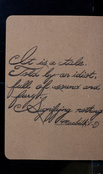 It is a tale.
Told by an idiot,
full of sound and
fury,
Signifying nothing